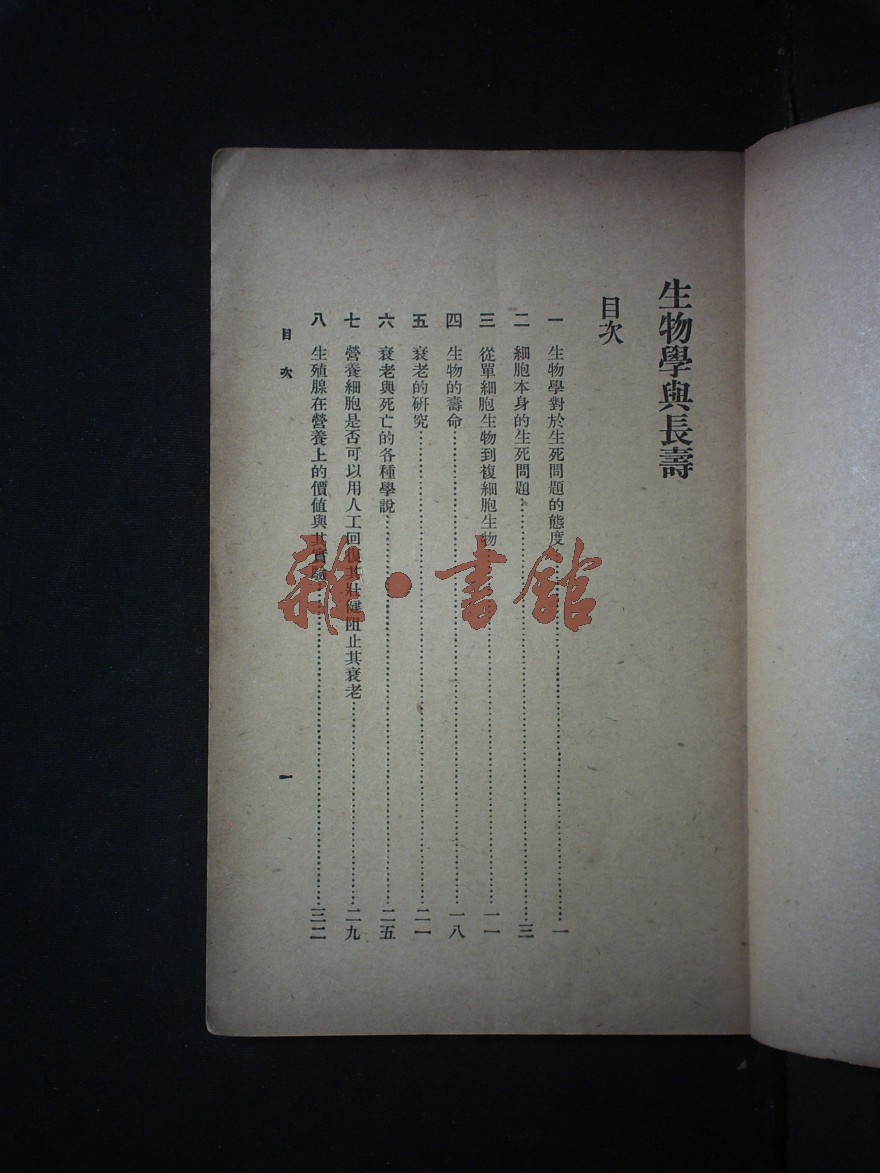 生物學與長壽
目次
一 生物學對於生死問題的態度……一
二 細胞本身的生死問題……三
三 從單細胞生物到複細胞生物……一一
四 生物的壽命……一八
五 衰老的研究……二一
六 衰老與死亡的各種學說……二五
七 營養細胞是否可以用人工回復其壯健阻止其衰老……二九
八 生殖腺在營養上的價值與其實驗……三二
目次 一
雜·書館